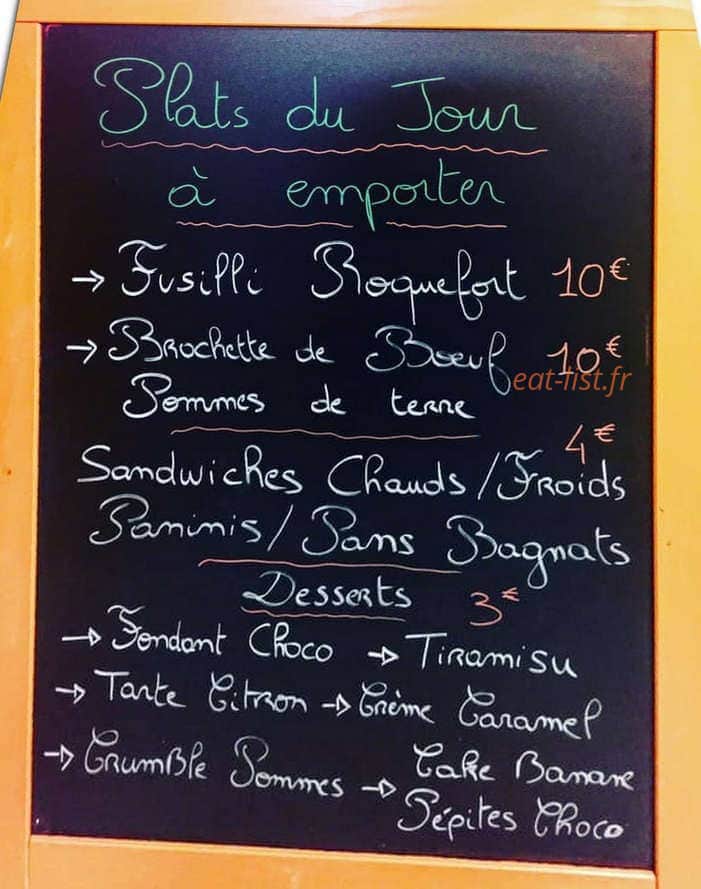 Plats du Jour
à emporter
→ Fusilli Roquefort 10€
→ Brochette de Bœuf 10€
eat-list.fr
Pommes de terre
4€
Sandwiches Chauds / Froids
Paninis / Pans Bagnats
Desserts 3€
→ Fondant Choco → Tiramisu
→ Tarte Citron → Crème Caramel
→ Crumble Pommes → Cake Banane
Pépites Choco